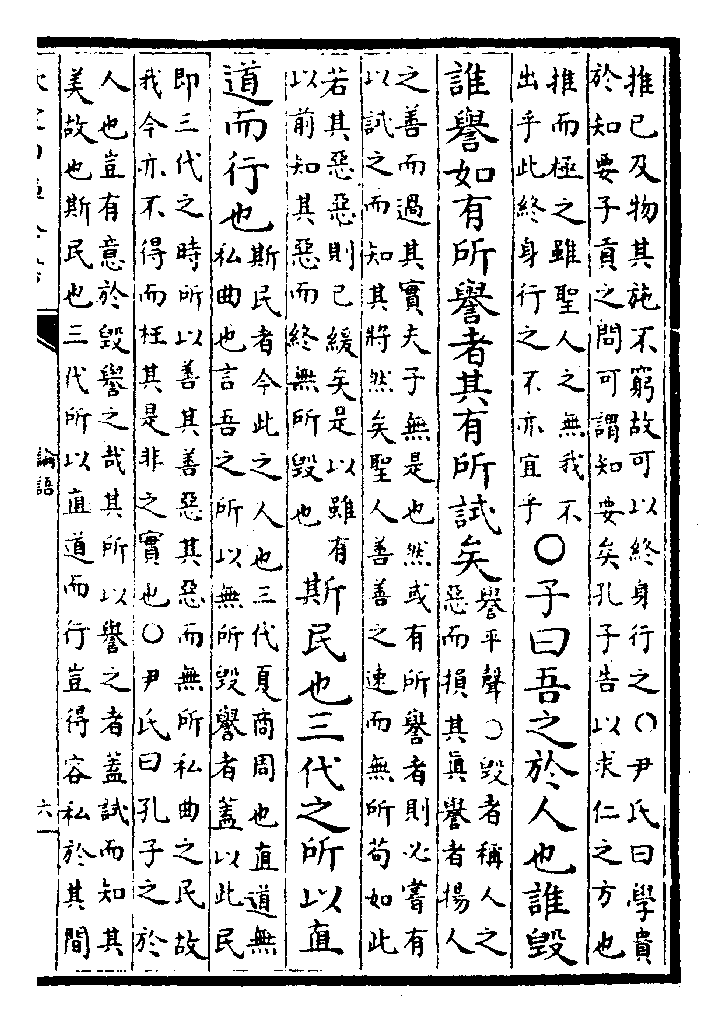 推己及物其施不窮故可以終身行之〇尹氏曰學貴
於知要子貢之問可謂知要矣孔子告以求仁之方也
推而極之雖聖人之無我不
出乎此終身行之不亦宜乎
〇子曰吾之於人也誰毁
誰譽如有所譽者其有所試矣
譽平聲〇毁者稱人之
惡而損其眞譽者揚人
之善而過其實夫子無是也然或有所譽者則必嘗有
以試之而知其將然矣聖人善善之速而無所苟如此
若其惡惡則已緩矣是以雖有
以前知其惡而終無所毁也
斯民也三代之所以直
道而行也
斯民者今此之人也三代夏商周也直道無
私曲也言吾之所以無所毁譽者蓋以此民
即三代之時所以善其善惡其惡而無所私曲之民故
我今亦不得而枉其是非之實也〇尹氏曰孔子之於
人也豈有意於毁譽之哉其所以譽之者蓋試而知其
美故也斯民也三代所以直道而行豈得容私於其間
論語
六